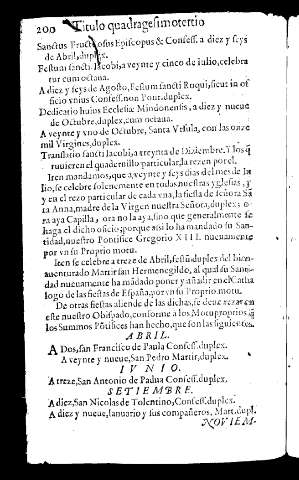 200 Titulo quadragesimotertio
Sanctus Fructuosus Episcopus & Confess. a diez y seys
de Abril, duplex.
Festum sancti Iacobi, a veynte y cinco de iulio, celebra
tur cum octaua.
A diez y seys de Agosto, festum sancti Ruqui, sicut in of
ficio vnius Confess. non Pont. duplex.
Dedicatio huius Ecclesiæ Mindoniensis, a diez y nueue
de Octubre, duplex, cum octaua.
A veynte y vno de Octubre, Santa Vrsula, con las onze
mil Virgines, duplex.
Translatio sancti Iacobi, a treynta de Diziembre. Y los q̃
tuuieren el quadernillo particular, la rezen por el.
Iten mandamos, que a veynte y seys dias del mes de Iu
lio, se celebre solenemente en todas nuestras yglesias, y
y en el rezo particular de cada vna, la fiesta de señora Sã
ta Anna, madre de la Virgen nuestra Señora, duplex, o
ra aya Capilla, ora no la aya, sino que generalmente se
haga el dicho oficio, porque assi lo ha mandado su San-
tidad, nuestro Pontifice Gregorio XIII. nueuamente
por vn su Proprio motu.
Iten se celebre a treze de Abril, festũ duplex del bien-
auenturado Martir san Hermenegildo, al qual su Santi
dad nueuamente ha mãdado poner y añadir en el Catha
logo de las fiestas de España, por vn su Proprio motu.
De otras fiestas aliende de las dichas, se deue rezar en
este nuestro Obispado, conforme a los Motuproprios q̃
los Summos Põtifices han hecho, que son las siguientes.
ABRIL.
A Dos, san Francisco de Paula Confess. duplex.
A veynte y nueue, San Pedro Martir, duplex.
IVNIO.
A treze, San Antonio de Padua Confess. duplex.
SETIEMBRE.
A diez, San Nicolas de Tolentino, Confess. duplex.
A diez y nueue, Ianuario y sus compañeros, Mart. dupl.
NOVIEM-